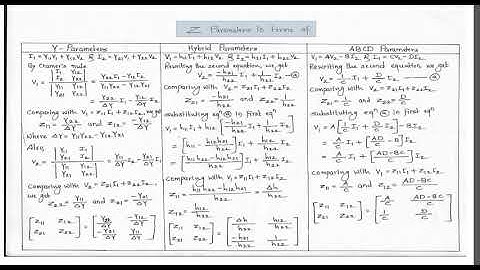 Z Parameters in terms of
Y- Parameters
I1 = Y11V1 + Y12V2 & I2 = Y21V1 + Y22V2
By Cramer's rule
V1 = |I1 Y12; I2 Y22| / |Y11 Y12; Y21 Y22| = (Y22I1 - Y12I2) / (Y11Y22 - Y12Y21)
Comparing with V1 = Z11I1 + Z12I2, we get
Z11 = Y22/ΔY and Z12 = -Y12/ΔY
Where ΔY = Y11Y22 - Y12Y21
Also,
V2 = |Y11 I1; Y21 I2| / |Y11 Y12; Y21 Y22| = Y11/ΔY I2 - Y21/ΔY I1
Comparing with V2 = Z21I1 + Z22I2
we get
Z22 = Y11/ΔY and Z21 = -Y21/ΔY
[Z11 Z12; Z21 Z22] = [Y22/ΔY -Y12/ΔY; -Y21/ΔY Y11/ΔY]
Hybrid Parameters
V1 = h11I1 + h12V2 & I2 = h21I1 + h22V2
Rewriting the second equation, we get
V2 = -h21/h22 I1 + 1/h22 I2
Comparing with V2 = Z21I1 + Z22I2
Z21 = -h21/h22 and Z22 = 1/h22
Substituting eqn in first eqn
V1 = h11I1 + h12 [-h21/h22 I1 + 1/h22 I2]
= [h11 - h12h21/h22] I1 + h12/h22 I2
= [(h11h22 - h12h21)/h22] I1 + h12/h22 I2
Comparing with V1 = Z11I1 + Z12I2
Z11 = (h11h22 - h12h21)/h22 = Δh/h22
Z12 = h12/h22
[Z11 Z12; Z21 Z22] = [Δh/h22 h12/h22; -h21/h22 1/h22]
ABCD Parameters
V1 = AV2 - BI2 & I1 = CV2 - DI2
Rewriting the second equation we get
V2 = 1/C I1 + D/C I2
Comparing with V2 = Z21I1 + Z22I2
Z21 = 1/C and Z22 = D/C
Substituting eqn in first eqn
V1 = A [1/C I1 + D/C I2] - BI2
= A/C I1 + [AD/C - B] I2
= A/C I1 + [(AD-BC)/C] I2
Comparing with V1 = Z11I1 + Z12I2
Z11 = A/C and Z12 = (AD-BC)/C
[Z11 Z12; Z21 Z22] = [A/C (AD-BC)/C; 1/C D/C]